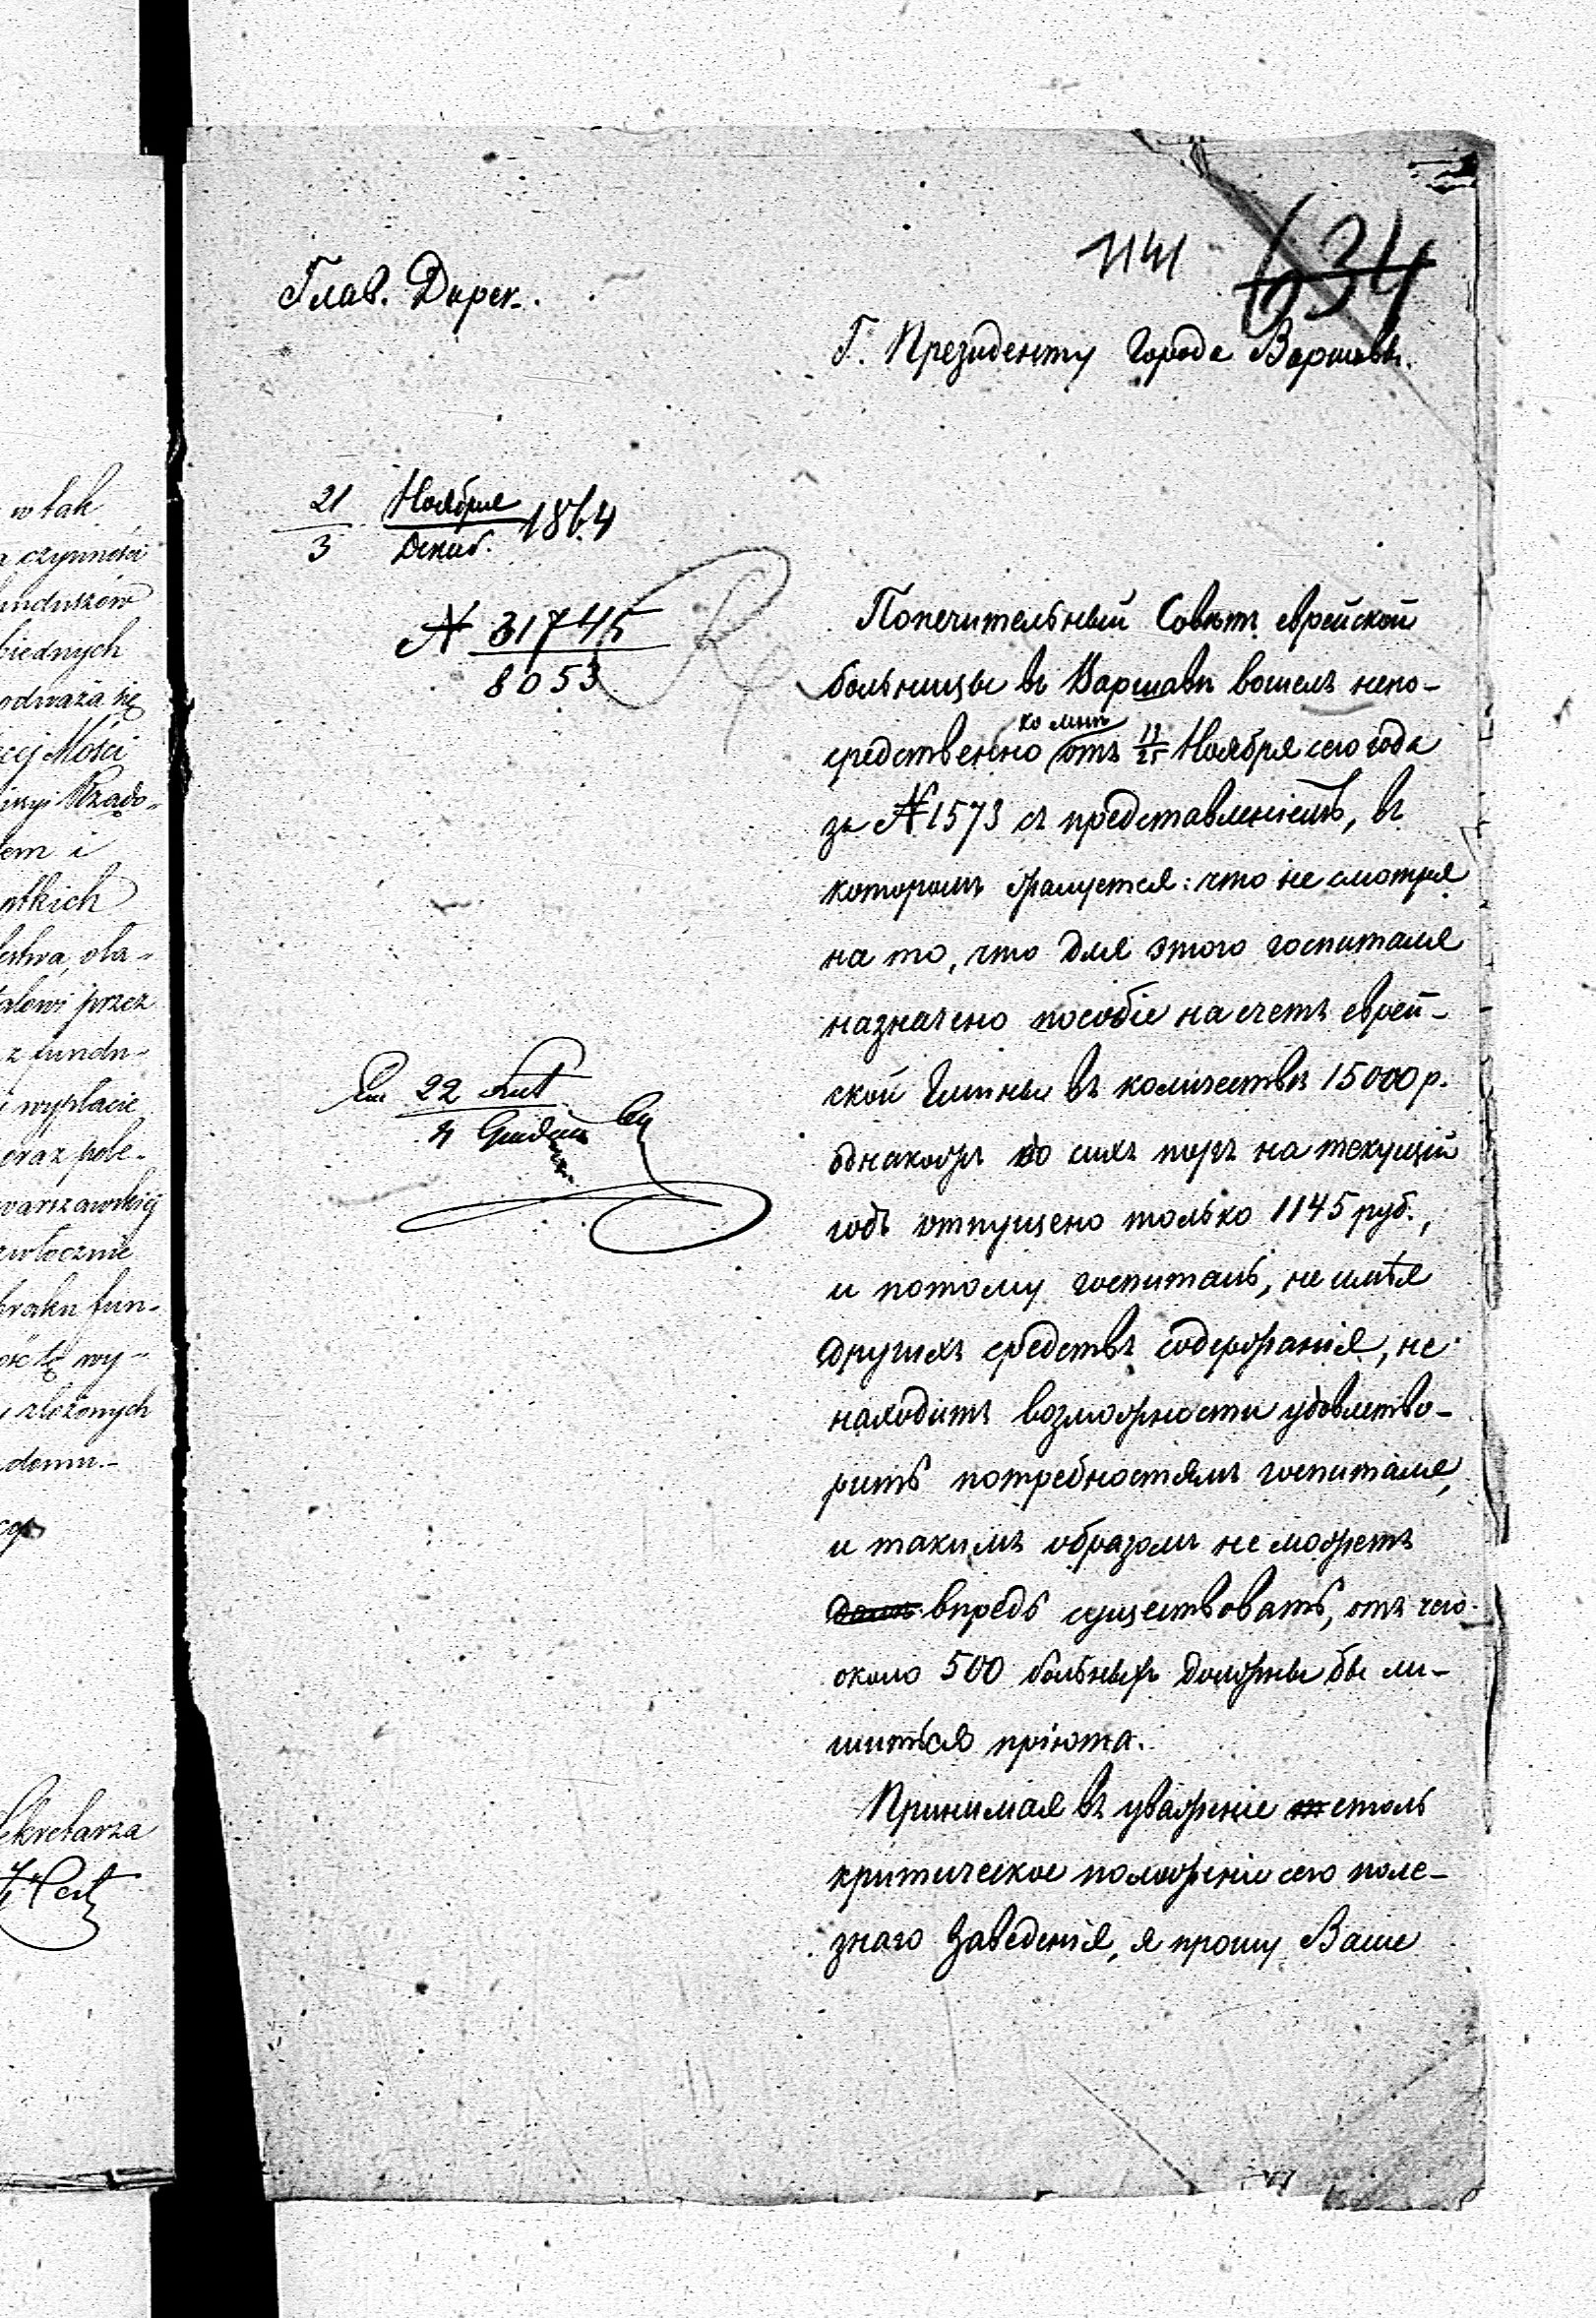 w tak
czynności
funduszów
biednych
odważa się
Mości
Rządo-
em i
tkich
przez
z fundu-
i wypłacie
oraz pole-
warszawskiej
braku fun-
wy-
złożonych
Sekretarza
1141 634
Глав. Дирек.
Г. Президенту Города Варшавы.
21 Ноября
3 Декаб. 1864
№ 31745
8053
22 List
4 Grudnia
Попечительный Совѣтъ еврейской
больницы въ Варшавѣ вошелъ непо-
средственно ко мнѣ отъ 13/25 Ноября сего года
за № 1573 съ представленіемъ, въ
которомъ что не смотря
на то, что для этого госпиталя
назначено пособіе на счетъ еврей-
ской Гмины въ количествѣ 15000 р.
однакожъ до сихъ поръ на текущій
годъ отпущено только 1145 руб.,
и потому госпиталь, не имѣя
другихъ средствъ содержанія, не
находитъ возможности удовлетво-
рить потребностямъ госпиталя,
и такимъ образомъ не можетъ
впредь существовать, отъ чего
около 500 больныхъ должны бы ли-
шиться пріюта.
Принимая въ уваженіе столь
критическое положеніе сего поле-
знаго Заведенія, я прошу Ваше